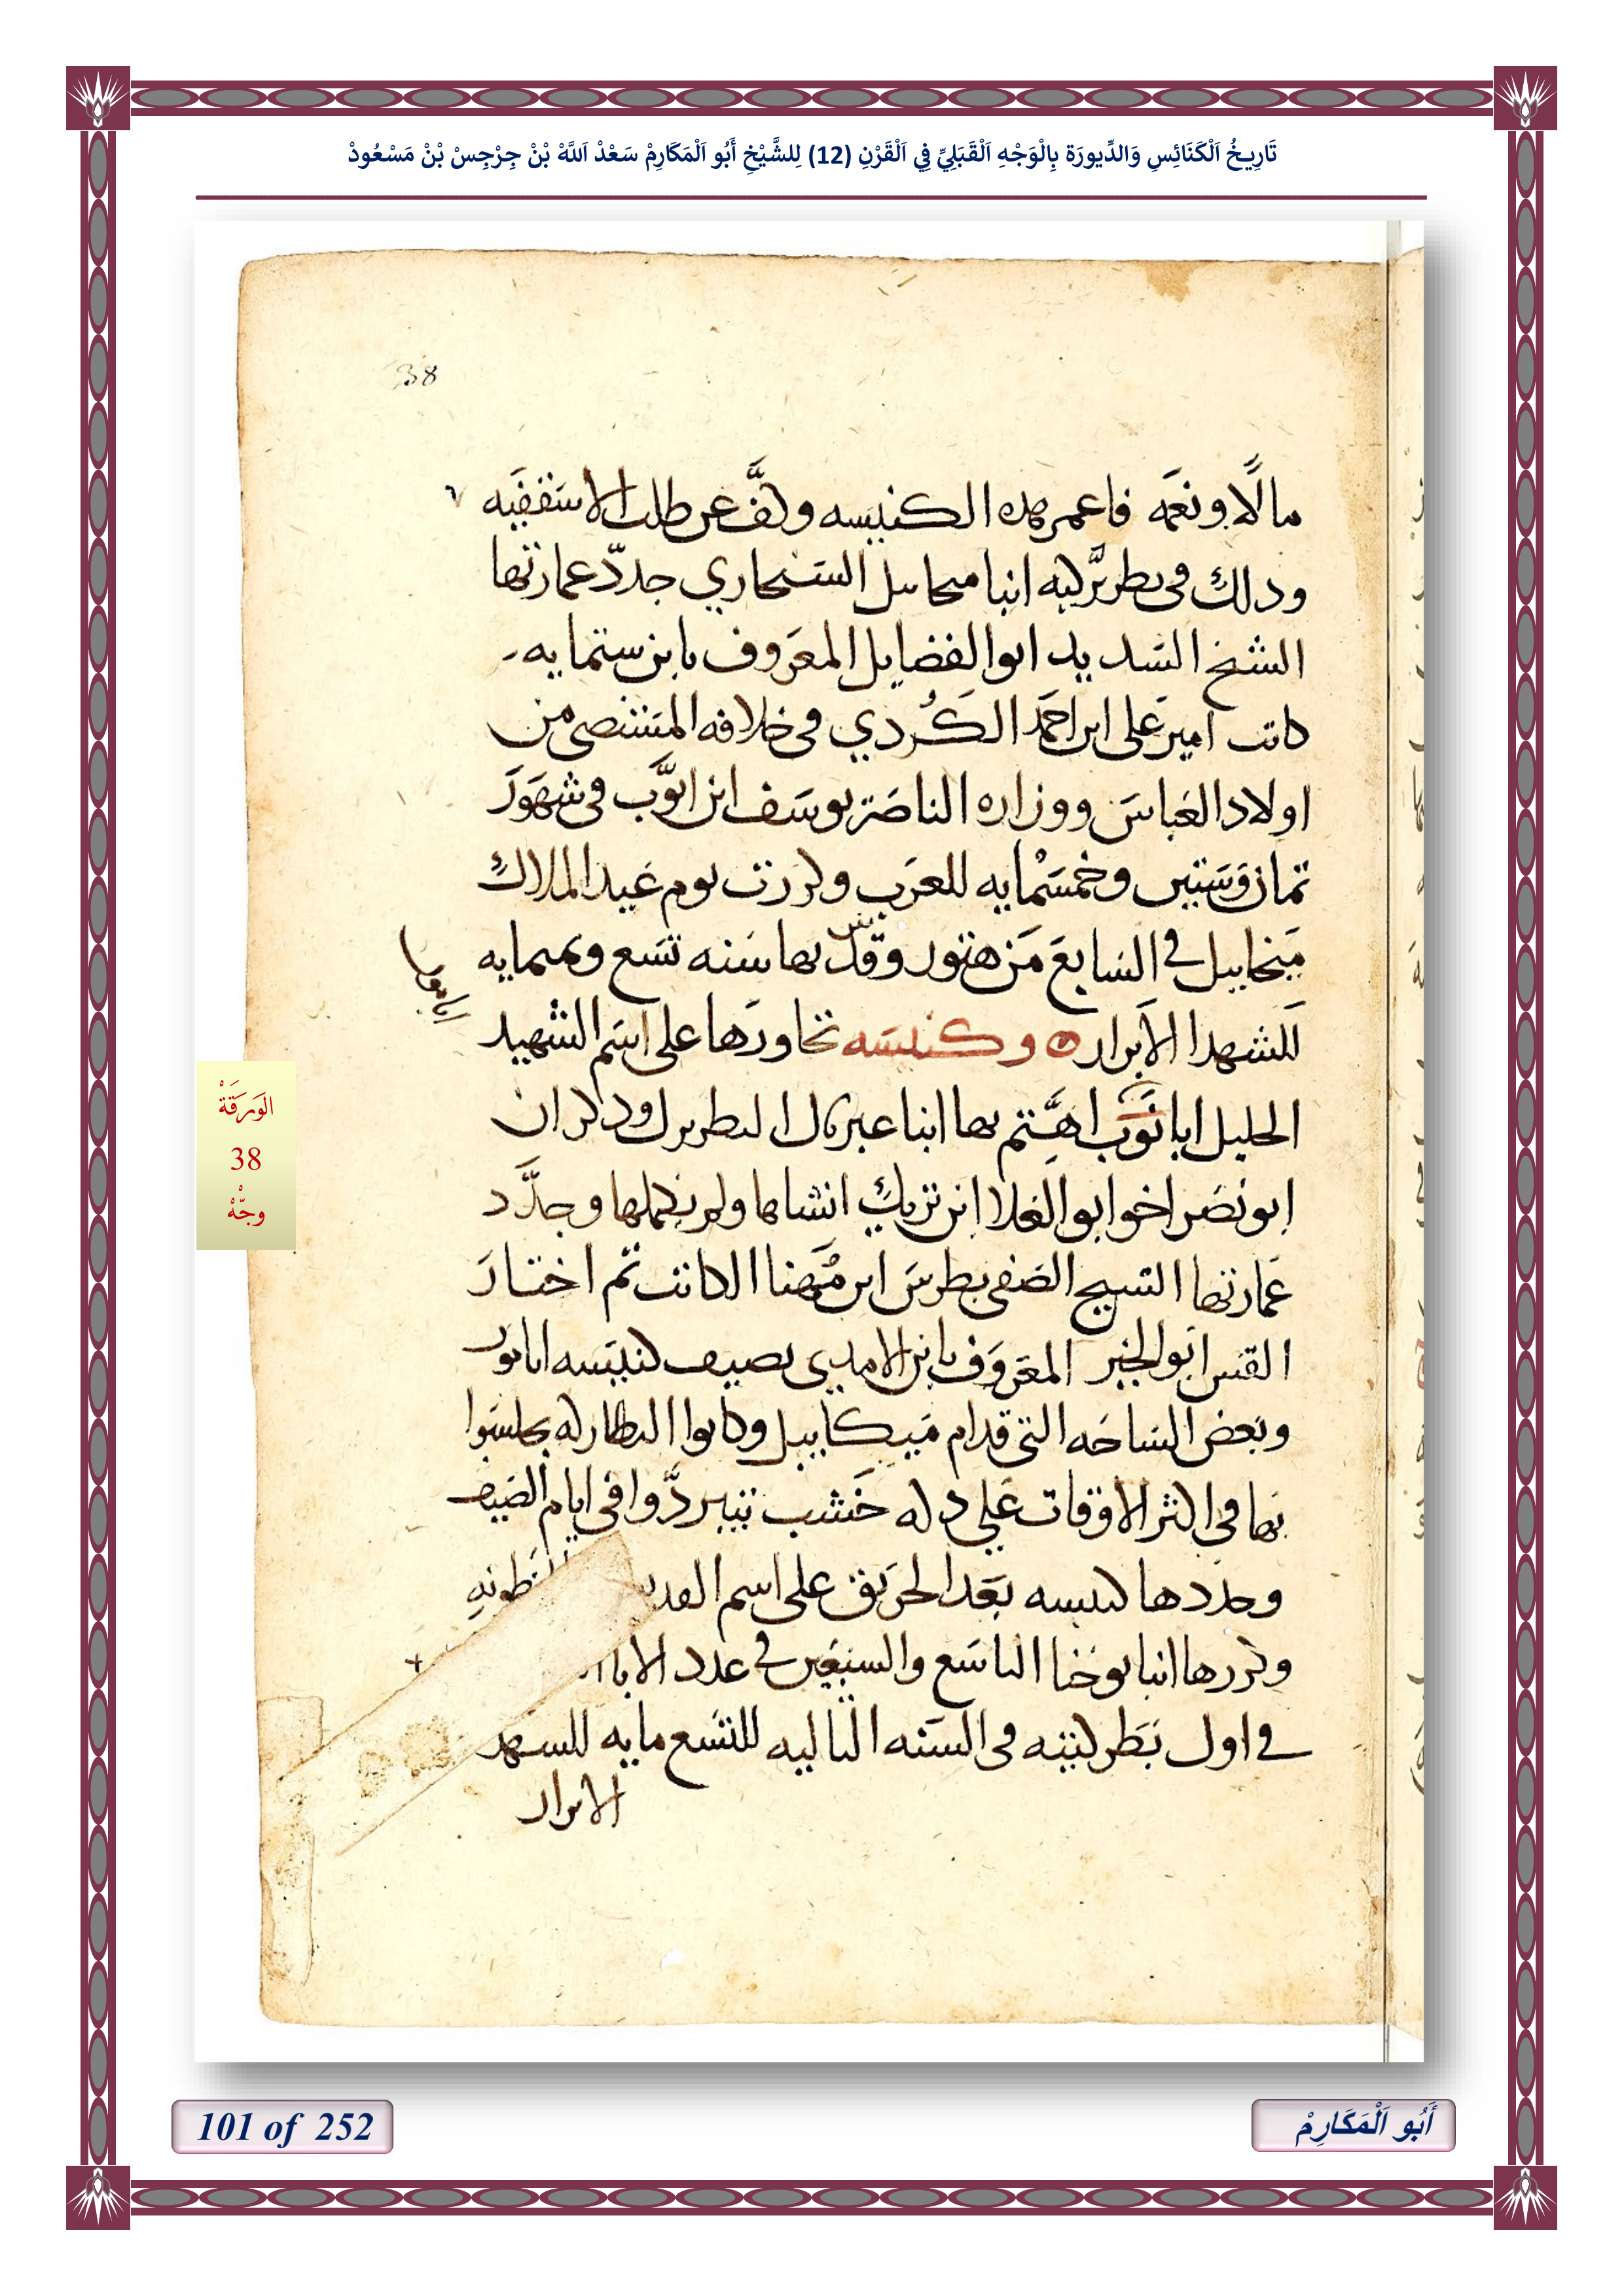 تَارِيخُ اَلْكَنَائِسِ وَالدِّيورَة بِالْوَجْهِ اَلْقَبَلِيِّ فِي اَلْقَرْنِ (12) لِلشَّيْخِ أَبُو اَلْمَكَارِمْ سَعْدْ اَللَّهْ بْنْ جِرْجِسْ بْنْ مَسْعُودْ
38
مالًا ونعمه فاعمر هده الكنيسه وكفَّ عن طلب الاسقفيه
ودلك فى بطريركيه انبا ميحاىيل السنجاري جدد عمارتها
الشيخ السديد ابوا لفضايل المعروف بابن ستمايه
كاتب امير على ابن احمد الكُردي فى خلافه المستضى من
اولاد العباس ووزاره الناصر يوسف ابن ايوب فى شهور
تمان وستين وخمسمايه للعرب وكرزت يوم عيد الملاك
ميخاييل فى السابع من هتور وقدس بها سنه تسع وتمنمايه
للشهدا الابرار وكنيسه تجاورها على اسم الشهيد
الجليل ابا نوب اهتم بها انبا غبريال البطريرك ودكر ان
ابو نصر اخو ابو العلا ابن تريك انشاها ولم يكملها وجدَّد
عمارتها الشيخ الصفى بطرس ابن مُهنا الكاتب تم اختار
القس ابو الخير المعروف بابن الامدي يصيف كنيسه ابا نوب
وبعض الساحه التى قدام ميكاييل وكانوا البطاركه يجلسوا
بها فى اكثر الاوقات على دكه خشب يتبردوا فى ايام الصيف
وجددها كنيسه بعد الحريق على اسم
وكررها انبا يوحنا التاسع والسبعين فى عدد الابا
فى اول بطركيته فى السنه التاليه للتسع مايه للشهد
الابرار
ابا نوب
الوَرَقَةْ
38
وجّهْ
101 of 252
أَبُو اَلْمَكَارِمْ